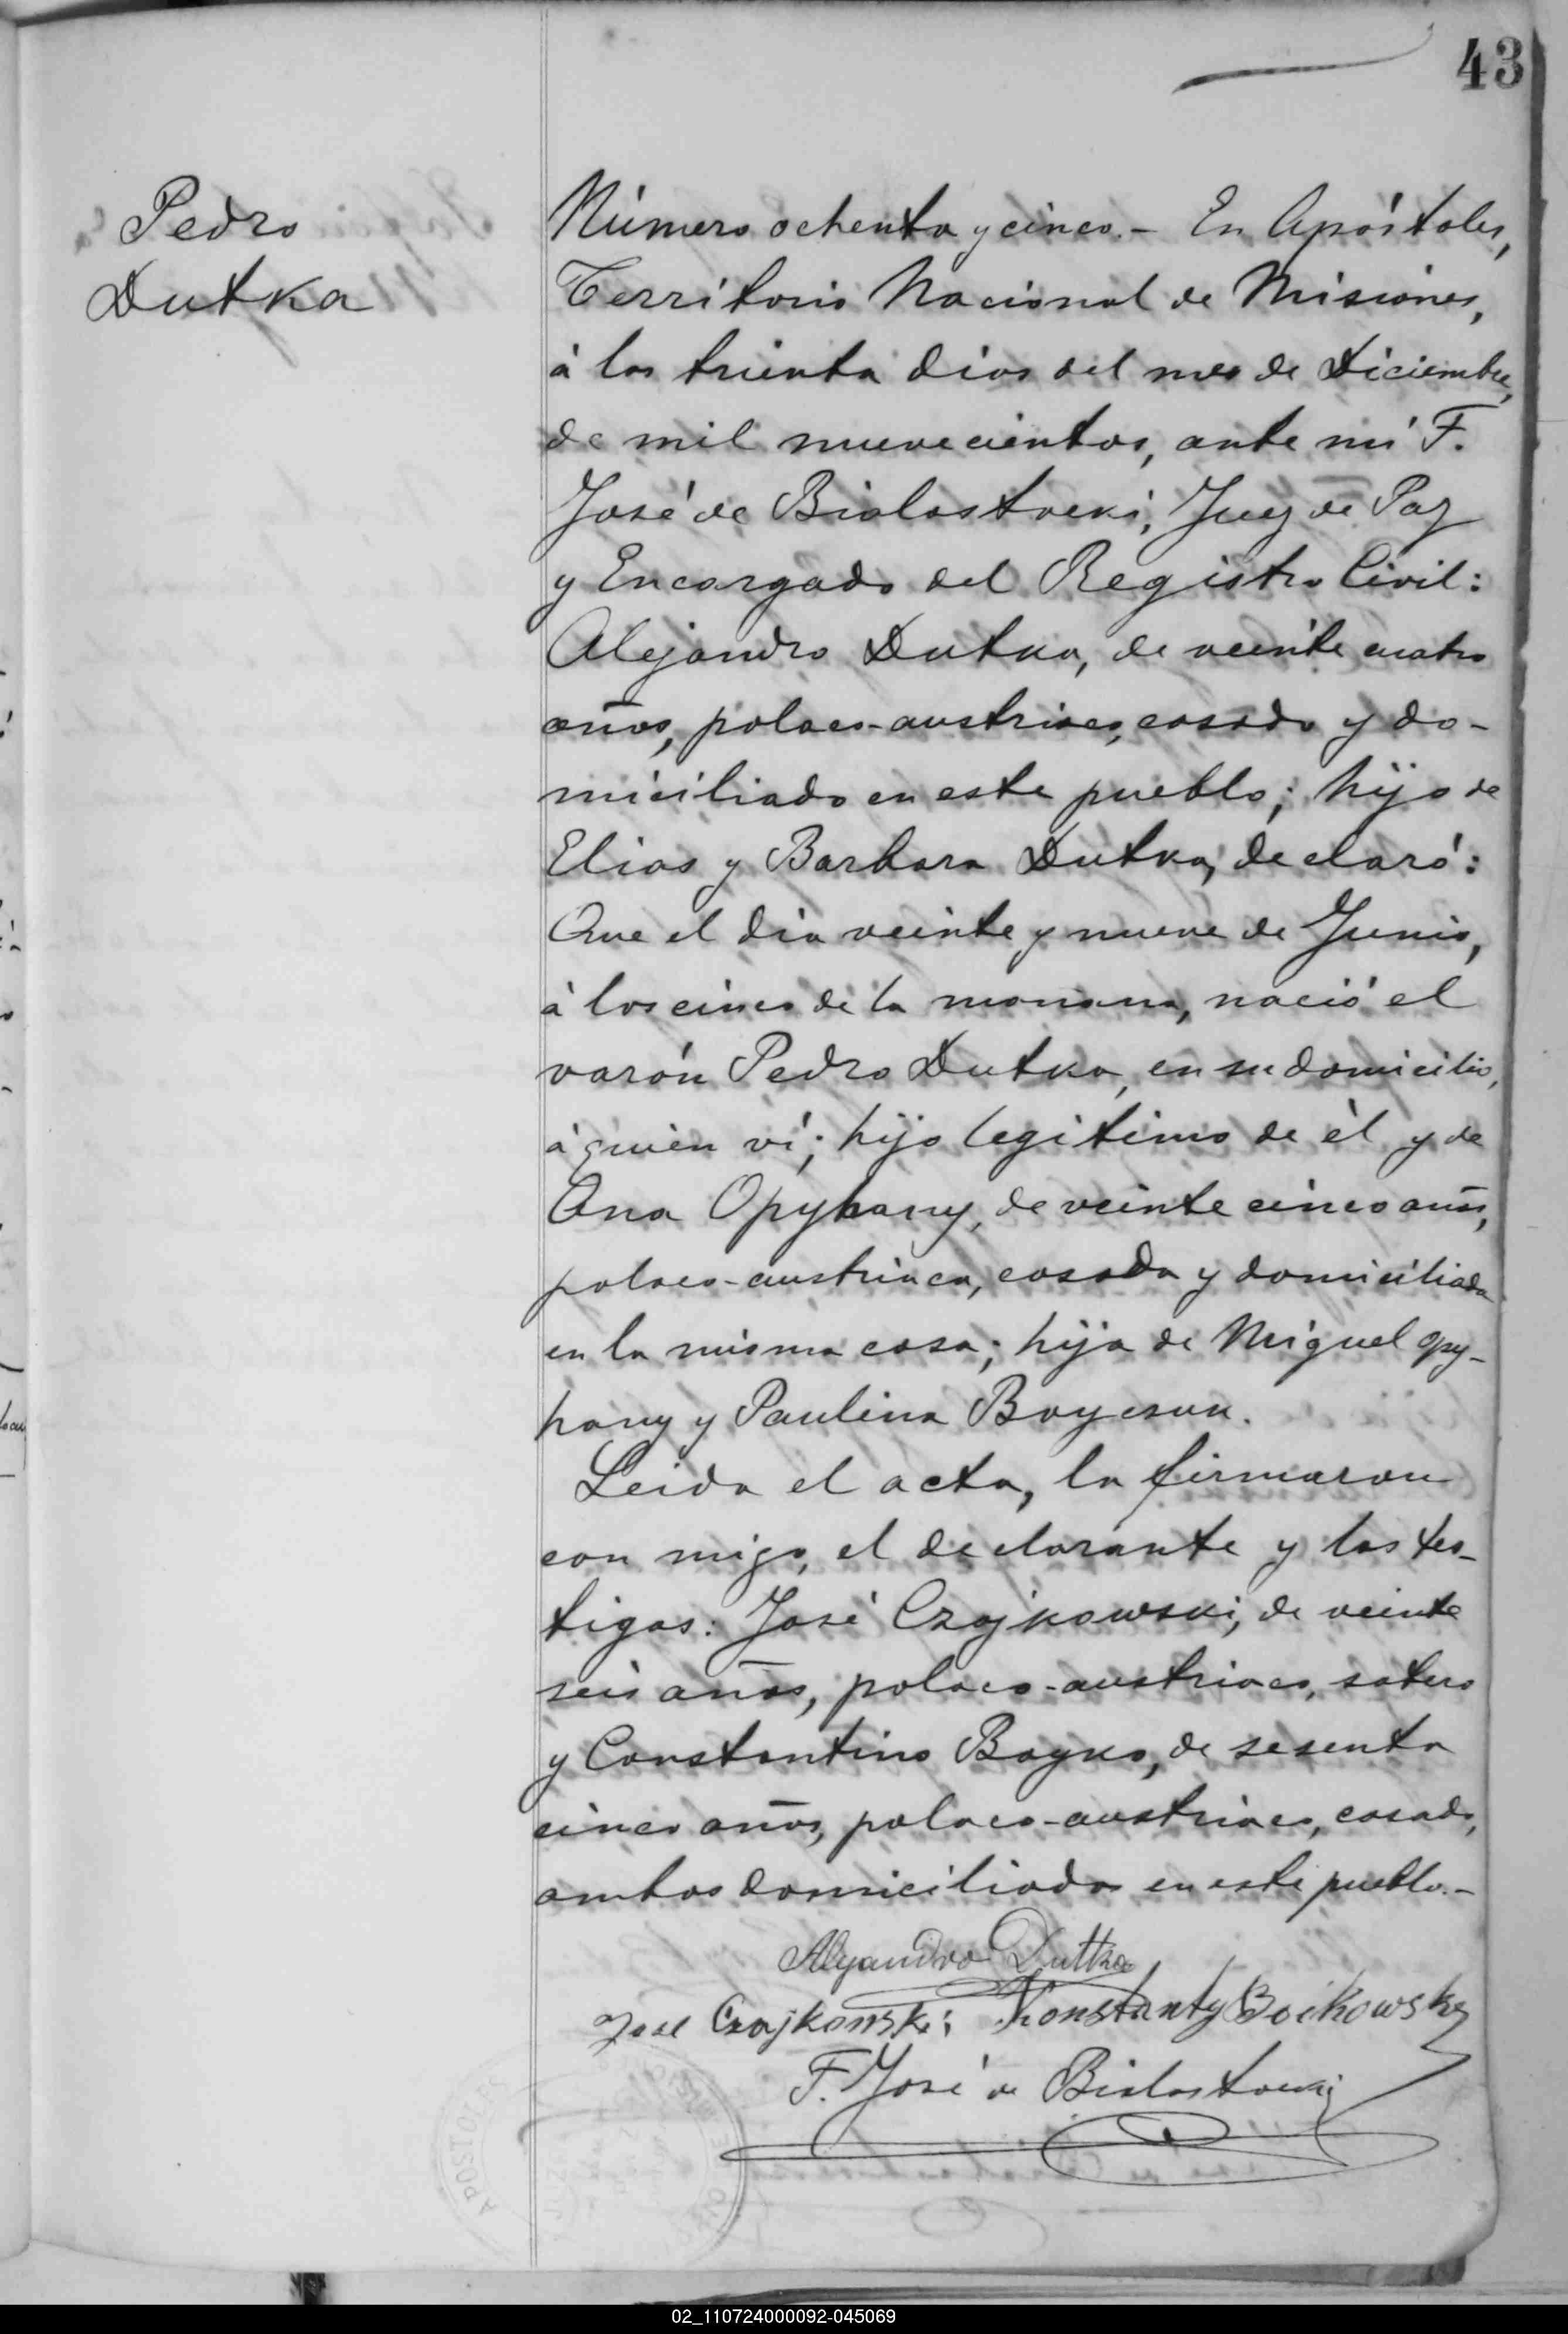 43
Pedro
Dutka
Número ochenta y cinco.- En Apóstoles,
Territorio Nacional de Misiones,
á los trienta dias del mes de Diciembre,
de mil nuevecientos, ante mi F.
José de Bialostocki, Juez de Paz
y Encargado del Registro Civil:
Alejandro Dutka, de veinte cuatro
años, polaco-austriaco, casado y do-
miciliado en este pueblo; hijo de
Elias y Barbara Dutka, declaró:
Que el dia veinte y nueve de Junio,
á las cinco de la manana, nació el
varón Pedro Dutka, en su domicilio,
á quien ví; hijo legitimo de él y de
Ana Opyhany, de veinte cinco años,
polaco-austriaca, casada y domiciliada
en la misma casa; hija de Miguel Opy-
hany y Paulina Boyczuk.
Leida el acta, la firmaron
con migo, el declarante y los tes-
tigos: José Czajkowski, de veinte
seis años, polaco-austriaco, soltero
y Constantino Boyko, de sesenta
cinco años, polaco-austriaco, casado,
ambos domiciliados en este pueblo.-
Alejandro Duttka
Jose Czajkowski; Konstanty Boikowski
F. José de Bialostocki
APOSTOLES
02_110724000092-045069